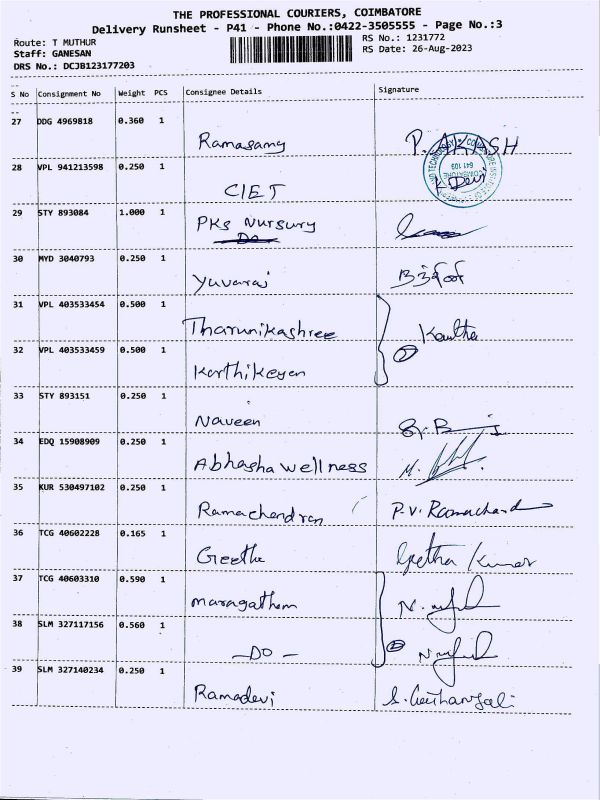 THE PROFESSIONAL COURIERS, COIMBATORE
Delivery Runsheet - P41 - Phone No.:0422-3505555 - Page No.:3
Route: T MUTHUR RS No.: 1231772
Staff: GANESAN RS Date: 26-Aug-2023
DRS No.: DCJB123177203
S No Consignment No Weight PCS Consignee Details Signature
27 DDG 4969818 0.360 1
Ramasamy P. AKASH
28 VPL 941213598 0.250 1
CIET K Devi
29 STY 893084 1.000 1
PKs Nursury
30 MYD 3040793 0.250 1
Yuvaraj
31 VPL 403533454 0.500 1
Tharunikashree
32 VPL 403533459 0.500 1
Karthikeyan
33 STY 893151 0.250 1
Naveen
34 EDQ 15908909 0.250 1
Abhasha wellness
35 KUR 530497102 0.250 1
Ramachendran P.V. Ramachand
36 TCG 40602228 0.165 1
Geetha Geetha Kumar
37 TCG 40603310 0.590 1
maragatham
38 SLM 327117156 0.560 1
—DO—
39 SLM 327140234 0.250 1
Ramadevi